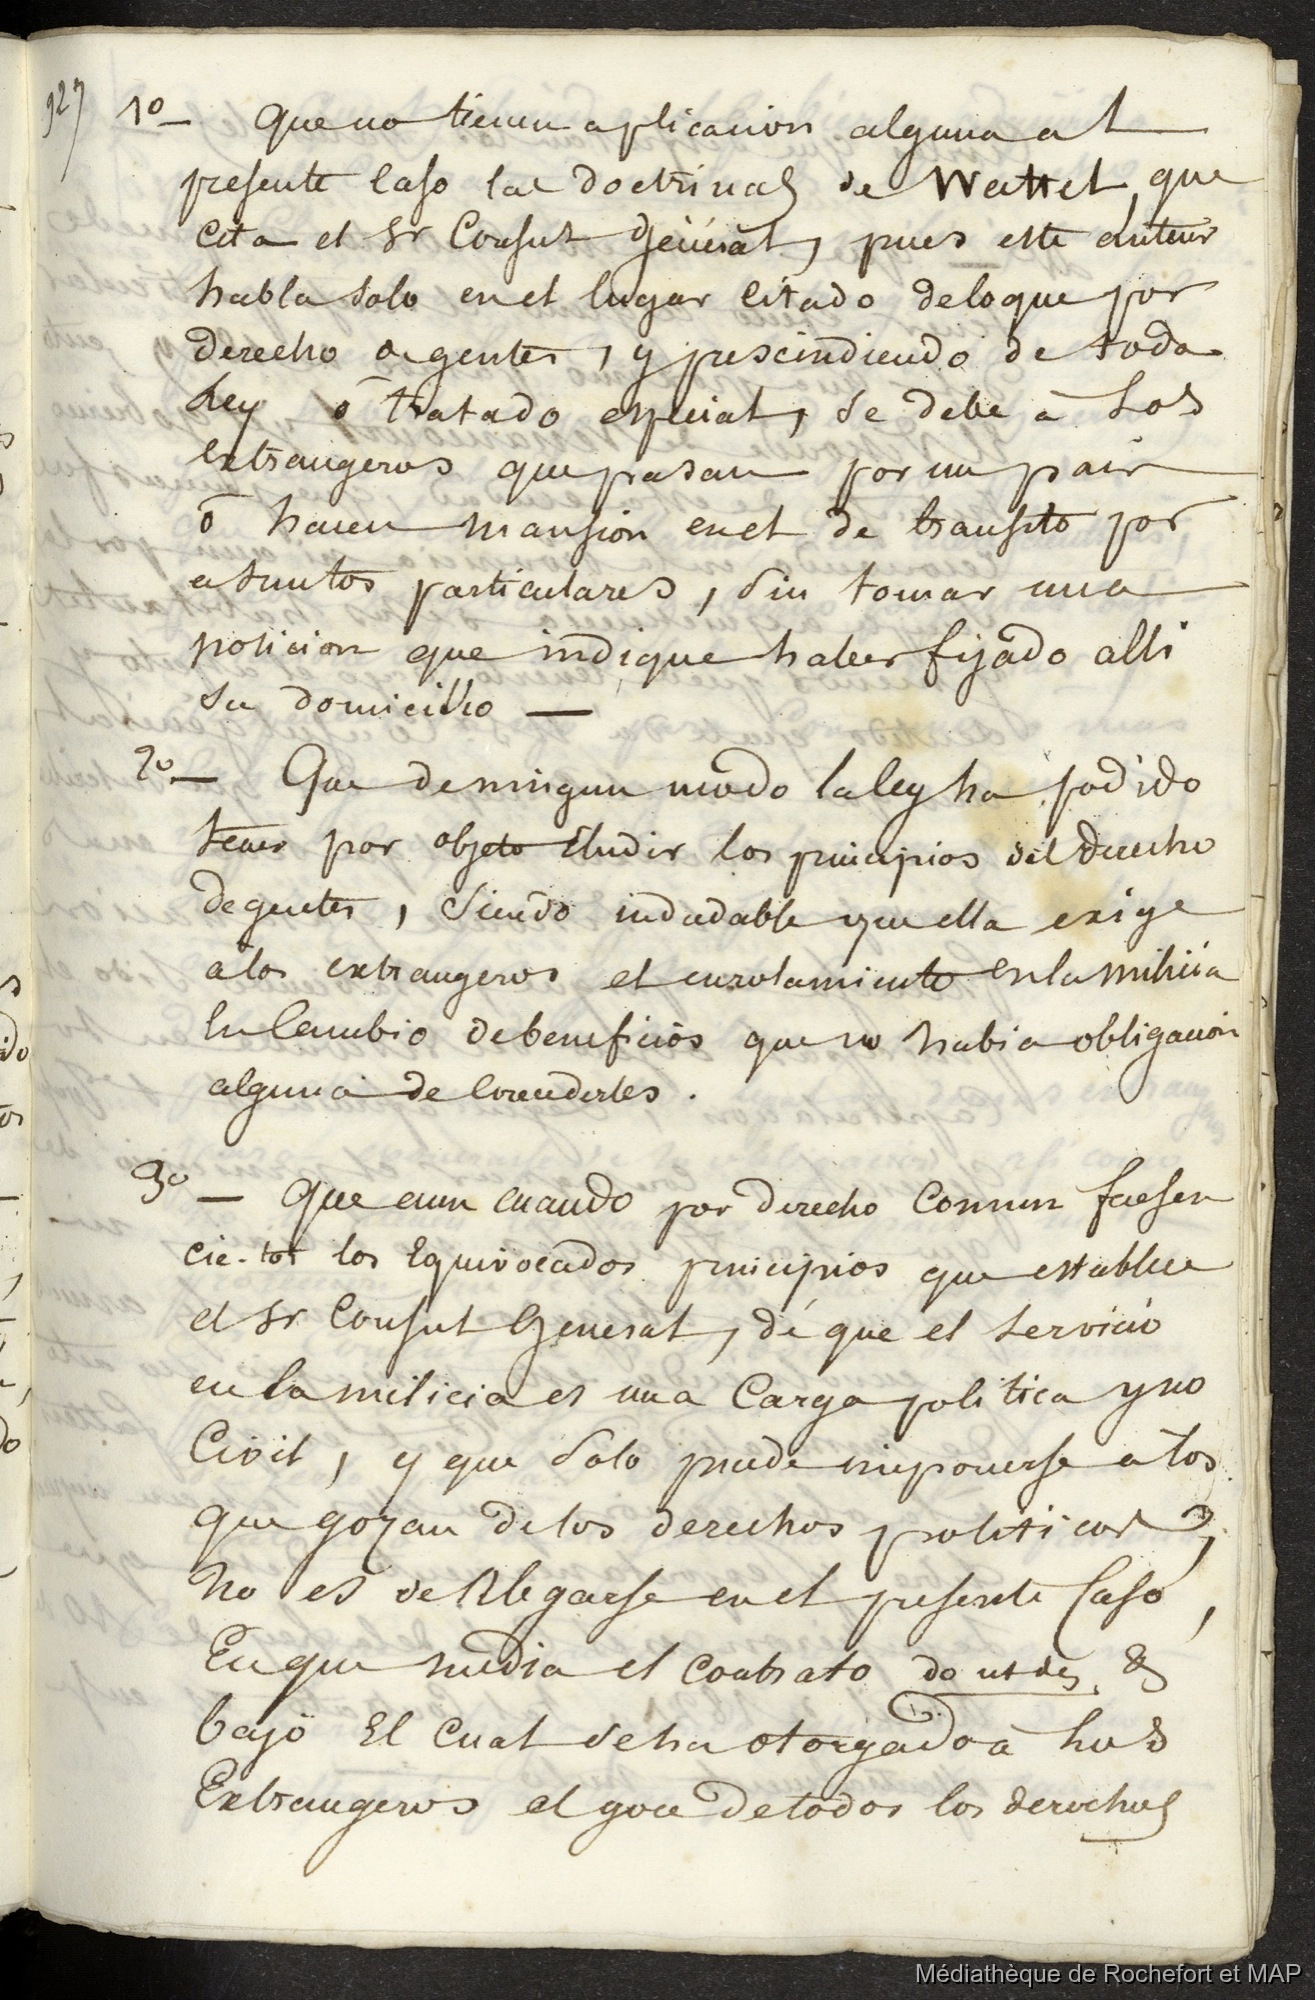 927
1o— Que no tienen aplicacion alguna al
presente caso las doctrinas de Wattel, que
cita el Sr Consul General, pues este auteur
habla solo en el lugar citado de lo que por
derecho de gentes, y prescindiendo de toda
Ley ó tratado especial, se debe à Los
extrangeros que pasan por un pais
ó hacen mansion en el de transito por
asuntos particulares, sin tomar una
posicion que indique haber fijado alli
su domicilio —
2o— Que de ningun modo la ley ha podido
tener por objeto Eludir los principios del derecho
de gentes, siendo indudable que ella exige
à los extrangeros el enrolamiento en la milicia
en Cambio de beneficios que no habia obligacion
alguna de concederles.
3o— Que aun cuando por derecho Comun fuesen
cie-tos los Equivocados principios que establece
el Sr Consul General, dé que el servicio
en la milicia es una Carga politica y no
Civil, y que Solo puede imponerse a los
que gozan de los derechos politicos,
no es de Alegarse en el presente Caso,
En que media el contrato do ut des, &
bajo El cual se ha otorgado à Los
Extrangeros el goce de todos los derechos
Médiathèque de Rochefort et MAP